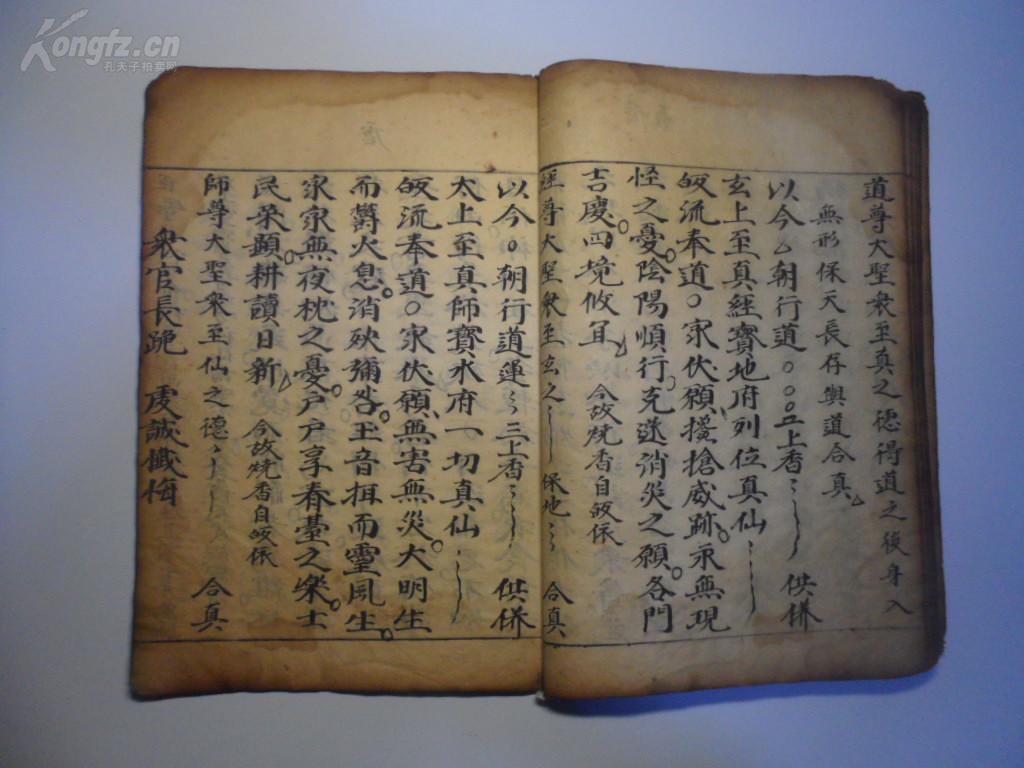 Kongfz.cn
孔夫子拍卖网
道尊大聖衆至真之德得道之後身入
無形保天長存與道合真
以今朝行道〇〇〇二上香 供养
玄上至真經寶地府列位真仙
皈流奉道〇家伏願攙搶威跡永無現
怪之憂陰陽順行克遂消災之願各門
吉慶四境攸 今故焼香自皈依
經尊大聖衆至玄之 保地 合真
以今〇朝行道運 三上香 供
太上至真師寶水府一切真仙
皈流奉道〇家伏願無害無災大明生
而爝火息消殃彌咎玉音揖而靈風生
家家無夜枕之憂戶戶享春臺之樂士
民荣顯耕讀日新 今故焼香自皈依
師尊大聖衆至仙之德 合真
衆官長跪 虔誠懺悔